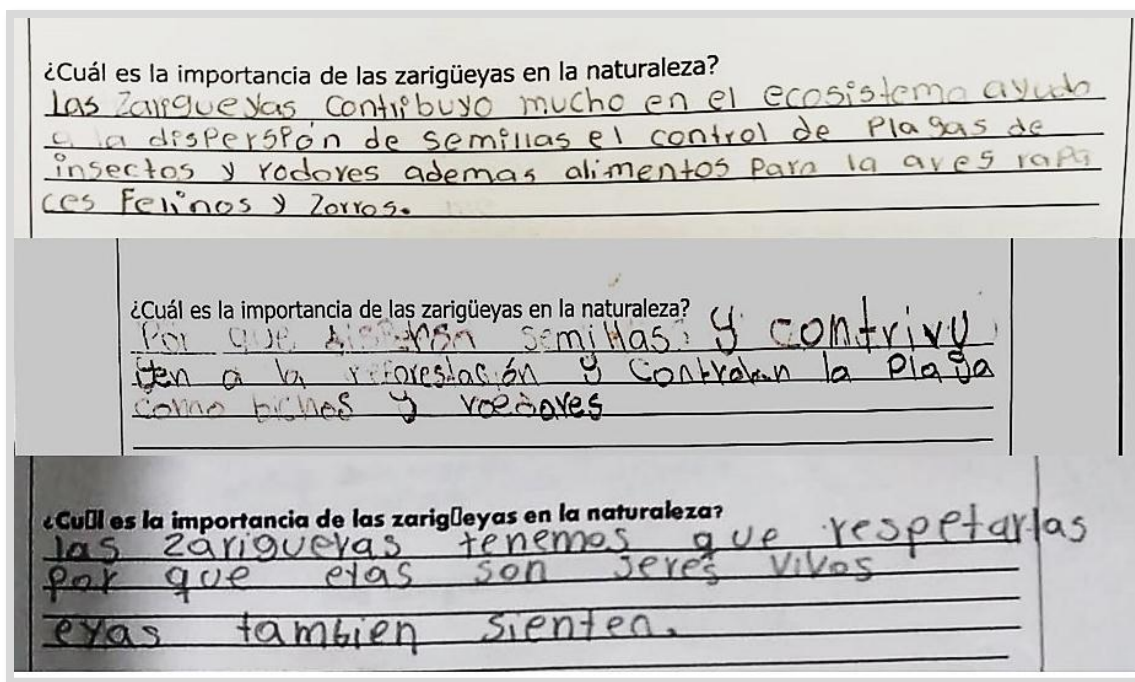 ¿Cuál es la importancia de las zarigüeyas en la naturaleza?
las Zarigueyas contribuyo mucho en el ecosistema ayudo
a la dispersion de semillas el control de plagas de
insectos y rodores ademas alimentos para la aves rapa
ces Felinos y Zorros.
¿Cuál es la importancia de las zarigüeyas en la naturaleza?
Por que semillas y contrivu
yen a la reforestación y controlan la plaga
como biches y roedores
¿Cu▯l es la importancia de las zarig▯eyas en la naturaleza?
las zarigueyas tenemos que respetarlas
por que eyas son seres vivos
eyas tambien sienten.